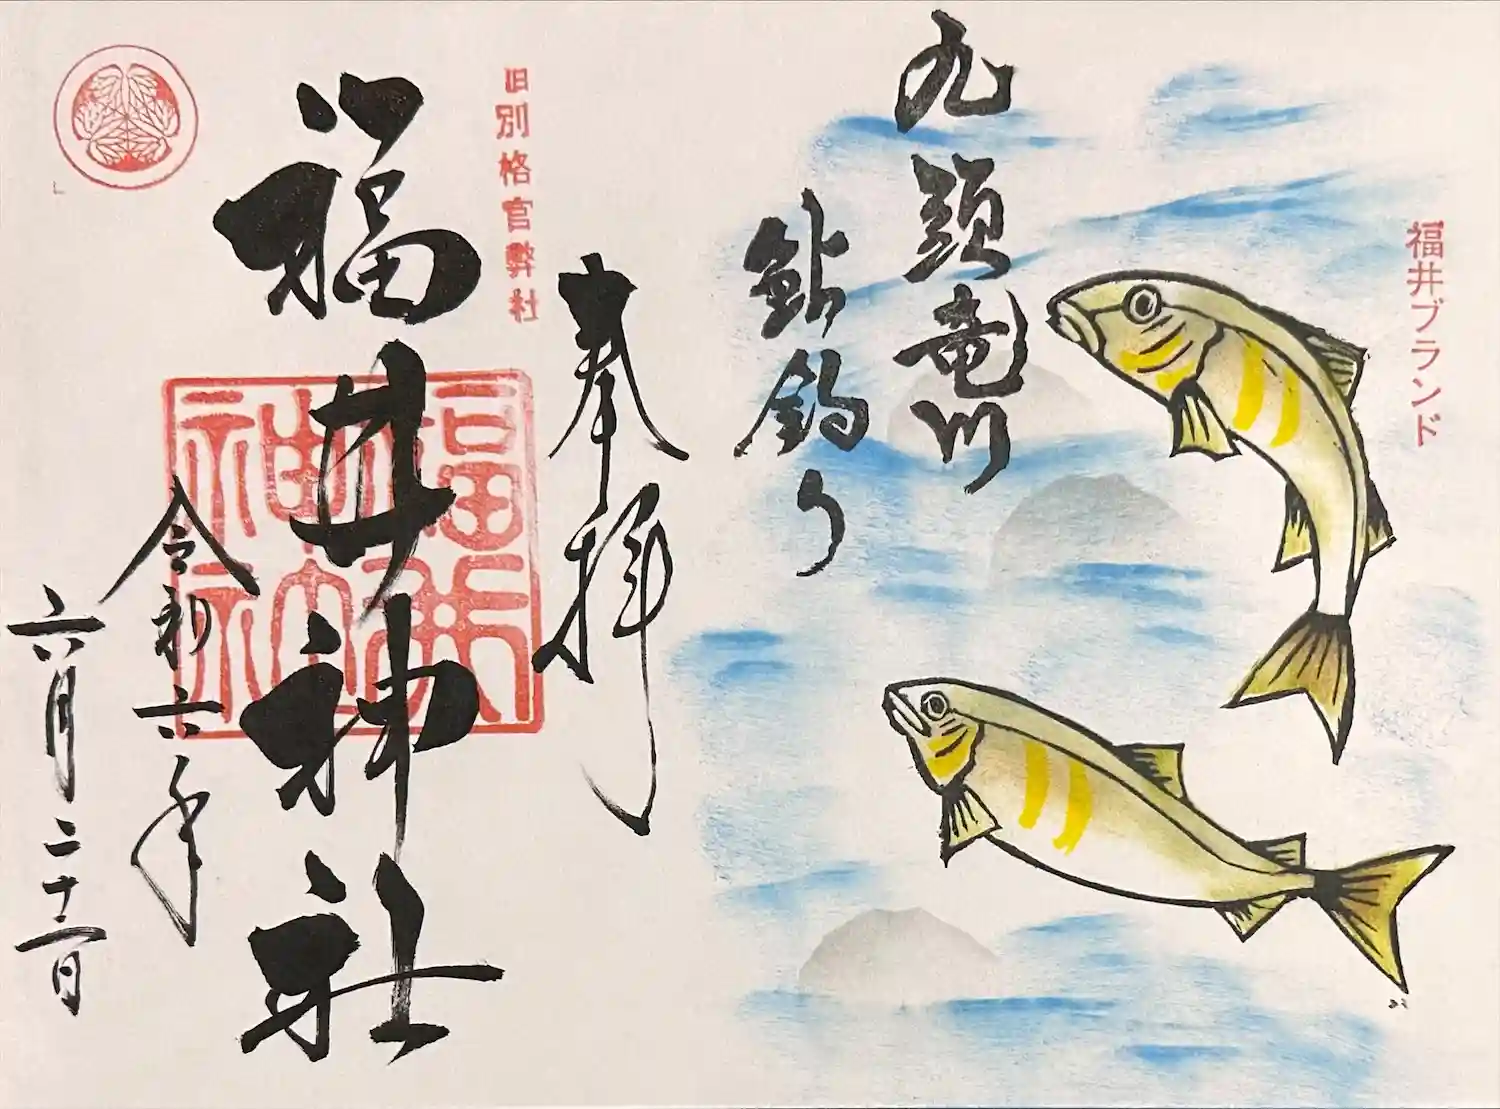 福井ブランド
九頭竜川
鮎釣り
奉拝
旧別格官幣社
福井神社
令和六年
六月二十二日